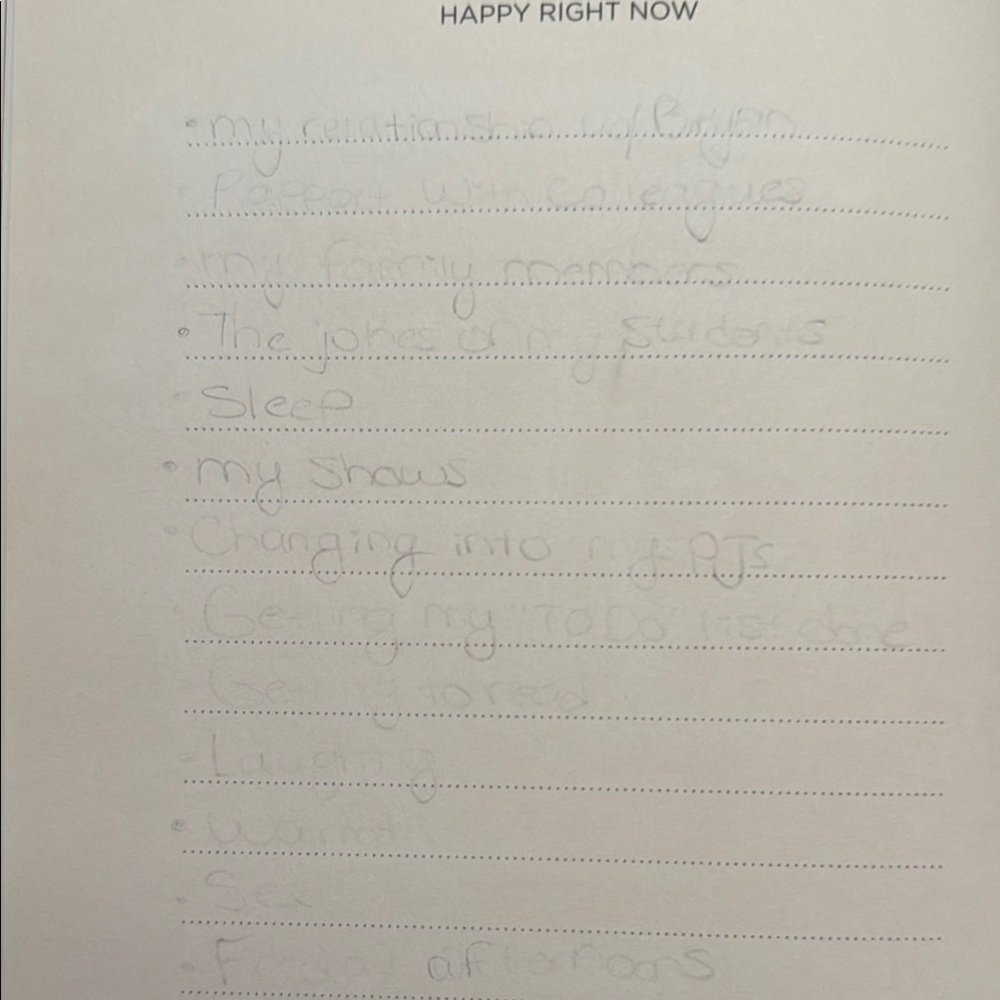 HAPPY RIGHT NOW
• my relationship w/ Bryan
• Rapport with Colleagues
• my family members
• The jokes of my students
• Sleep
• my shows
• Changing into my PJs
• Getting my "TO DO" list done
Getting to read
• Laughing
• Warmth
• Sex
• Friday afternoons